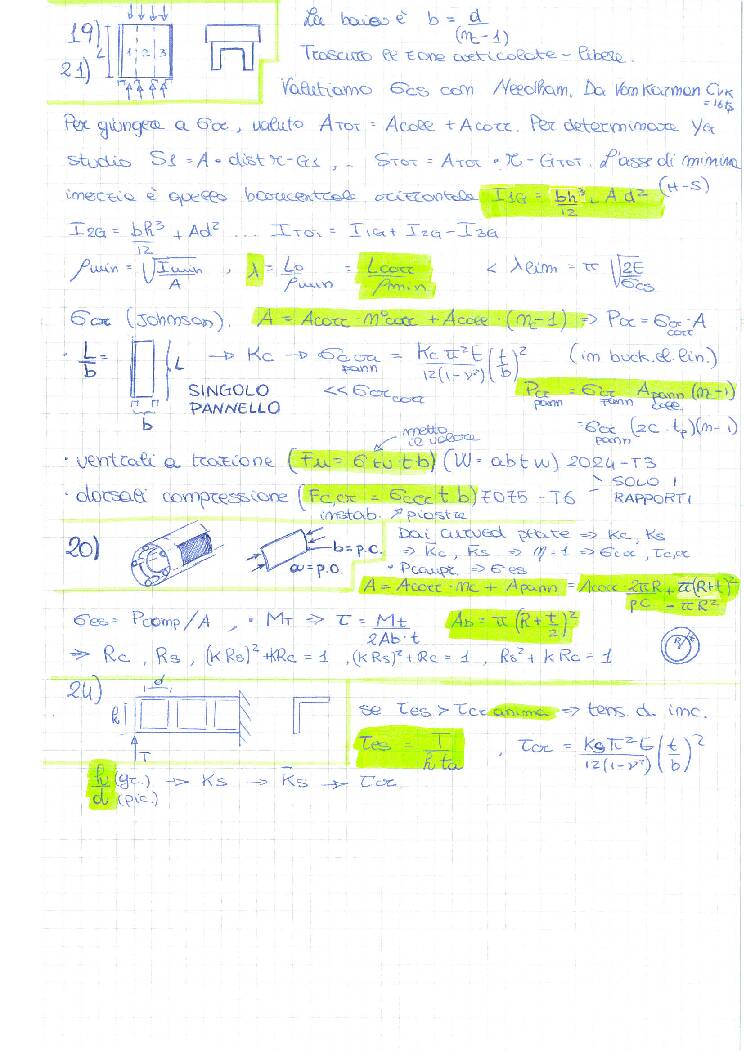 19)
21)
L
1 2 3
La baia è b = d/(nc-1)
Trascuro le zone articolate - libere.
Valutiamo σcs con Needham. Da Von Karman Cvk
Per giungere a σcr, valuto ATOT = Acoll + Acorr. Per determinare YG
studio S1 = A • dist x-G1, .. STOT = ATOT • x - GTOT. L'asse di minima
inerzia è quello baricentrale orizzontale I1G = bh³/12 + Ad² (H-S)
I2G = bh³/12 + Ad² ... ITOT = I1G + I2G - I3G
ρmin = √(Imin/A) , λ = L0/ρmin = Lcorr/ρmin < λlim = π √(2E/σcs)
σcr (Johnson). A = Acorr · n°corr + Acoll · (nc-1) => Pcr = σcr corr · A
· L/b = L b SINGOLO PANNELLO → Kc → σccr pann = Kc π² E/12(1-ν²) (t/b)² (im buck. el. lin.)
<< σcr corr
Pcr pann = σcr pann Apann (n-1)
= σcr pann (2C · tp)(n-1)
metto il valore
· ventrali a trazione (Fu = σtu t b) (W = abtw) 2024-T3
· dorsali compressione (Fc,cr = σccr t b) 7075-T6
SOLO I RAPPORTI
instab. piastre
20)
b = p.c.
a = p.o.
Dai curved plate => Kc, Ks
=> Kc, K̄s => η=1 => σcr, τcr
=> σes
A = Acorr · nc + Apann = Acorr · 2πR/pc + π(R+t)² - πR²
σes = Pcomp/A , • MT => τ = Mt/2Ab·t Ab = π(R + t/2)²
R/t
=> Rc , Rs , (kRs)² + kRc = 1 , (kRs)² + Rc = 1 , Rs² + kRc = 1
24)
d
h
T
se τes > τcr anima => tens. d. inc.
τes = T/h ta , τcr = Ks π² E/12(1-ν²) (t/b)²
h (gr.)/d (pic.) → Ks → K̄s → τcr